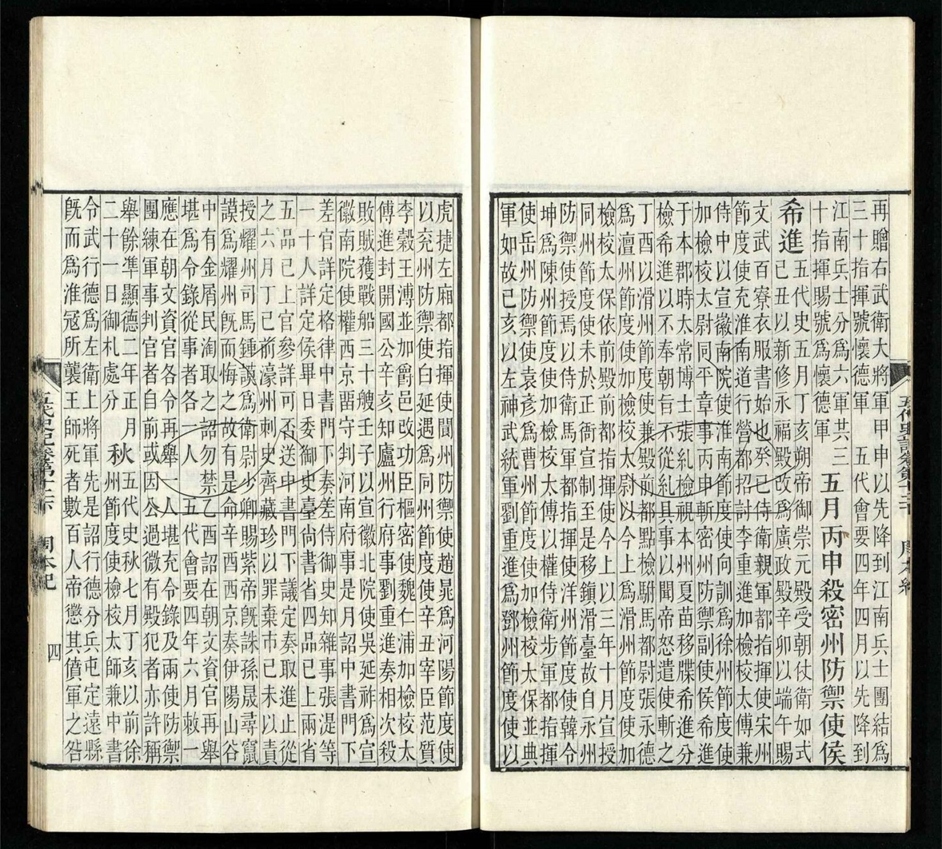 再贈右武衛大將軍甲申以先降到江南兵士團結爲
三十指揮號懷德軍　五代會要四年四月以先降到
江南兵士分爲六軍共三
十指揮賜號爲懷德軍
五月丙申殺密州防禦使侯
希進
五代史五月丁亥朔帝御崇元殿受朝仗衛如式
己丑以新修永福殿改爲廣政殿辛卯以端午賜
文武百寮衣服書始也癸巳侍衛親軍都指揮使宋州
節度使充淮南道行營都招討李重進加檢校太傅兼
侍中以宣徽南院使淮南節度使向訓爲徐州節度使
加檢校太尉同平章事丙申斬密州防禦副使侯希進
于本郡時太常博士張糺檢視本州夏苗移牒希進分
檢希進以不奉朝旨不從糺具事以聞帝怒遣使斬之
丁酉以滑州節度使殿前都點檢駙馬都尉張永德
爲澶州節度使加檢校太尉以今上爲滑州節度使加
檢校太保依前殿前都指揮使今上以三年十月宣授
同州節度使未於正衙宣制至是移鎮滑臺故自永州
防禦使授焉以侍衛馬軍都指揮使洋州節度使韓令
坤爲陳州節度使加檢校太傅以權侍衛步軍都指揮
使岳州防禦使袁彥爲曹州節度使加檢校太保並典
軍如故己亥以左神武統軍劉重進爲鄧州節度使以
虎捷左廂都指揮使閬州防禦使趙晁爲河陽節度使
以充州防禦使白延遇爲同州節度使辛丑宰臣范質
李穀王溥並加爵邑改功臣樞密使魏仁浦加檢校太
傅進封開國公辛亥知廬州行府事劉重進奏相次殺
敗賊獲戰船三十艘壬子以宣徽北院使吳延祚爲宣
徽南院使權西京畱守判河南府事是月詔中書門下
差官詳定格律中書門下奏差侍御史知雜事張湜等
一十人詳定候畢日委御史臺尚書省四品已上兩省
五品已上官參詳可否送中書門下議定奏取進止從
之六月丁巳前濠州刺史齊藏珍以罪棄市己未以責
授耀州司馬鍾謨爲衛尉少卿賜紫帝旣誅孫晟尋竄
謨爲耀州旣而悔之故有是命辛酉西京奏伊陽山谷
中有金屑民淘取之詔勿禁乙酉詔在朝文資官再舉
堪爲令錄從事者各一人　五代會要四年六月敕一
應在朝文資官各令再舉一人堪充令錄及兩使防禦
團練軍事判官者自前或因公過微有殿犯者亦許稱
舉餘準顯德二年正月
二十一日御札處分
秋
五代史秋七月丁亥以前徐
州節度使檢校太師兼中書
令武行德爲左衛上將軍先是詔行德分兵屯定遠縣
旣而爲淮寇所襲王師死者數百人帝懲其僨軍之咎
周本紀
四